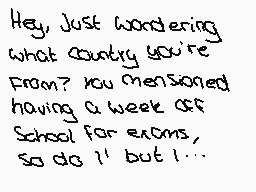 Hey, Just wondering
what country you're
From? You mensioned
having a week off
School for exams,
so do I' but I...